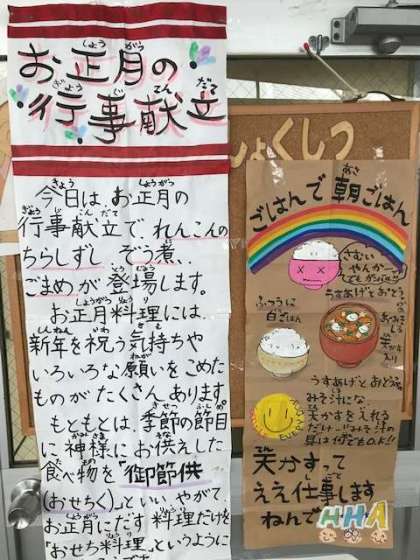 お正月の
行事献立
今日は、お正月の
行事献立で、れんこんの
ちらしずし、ぞう煮、
ごまめが登場します。
お正月料理には、
新年を祝う気持ちや
いろいろな願いをこめた
ものがたくさんあります。
もともとは、季節の節目
に神様にお供えした
食べ物を「御節供
(おせちく)」といい、やがて、
お正月にだす料理だけを
「おせち料理」というように
しょくしつ
ごはんで朝ごはん
さむい
やんがー
うすあげとおとうふ
ふつうに
白ごはん
うすあげとおとうふ
みそ汁に、
笑かすを入れる
だけ!
みそ汁の
具は何でもO.K!!
笑かすって
ええ仕事します
ねんで
HHA